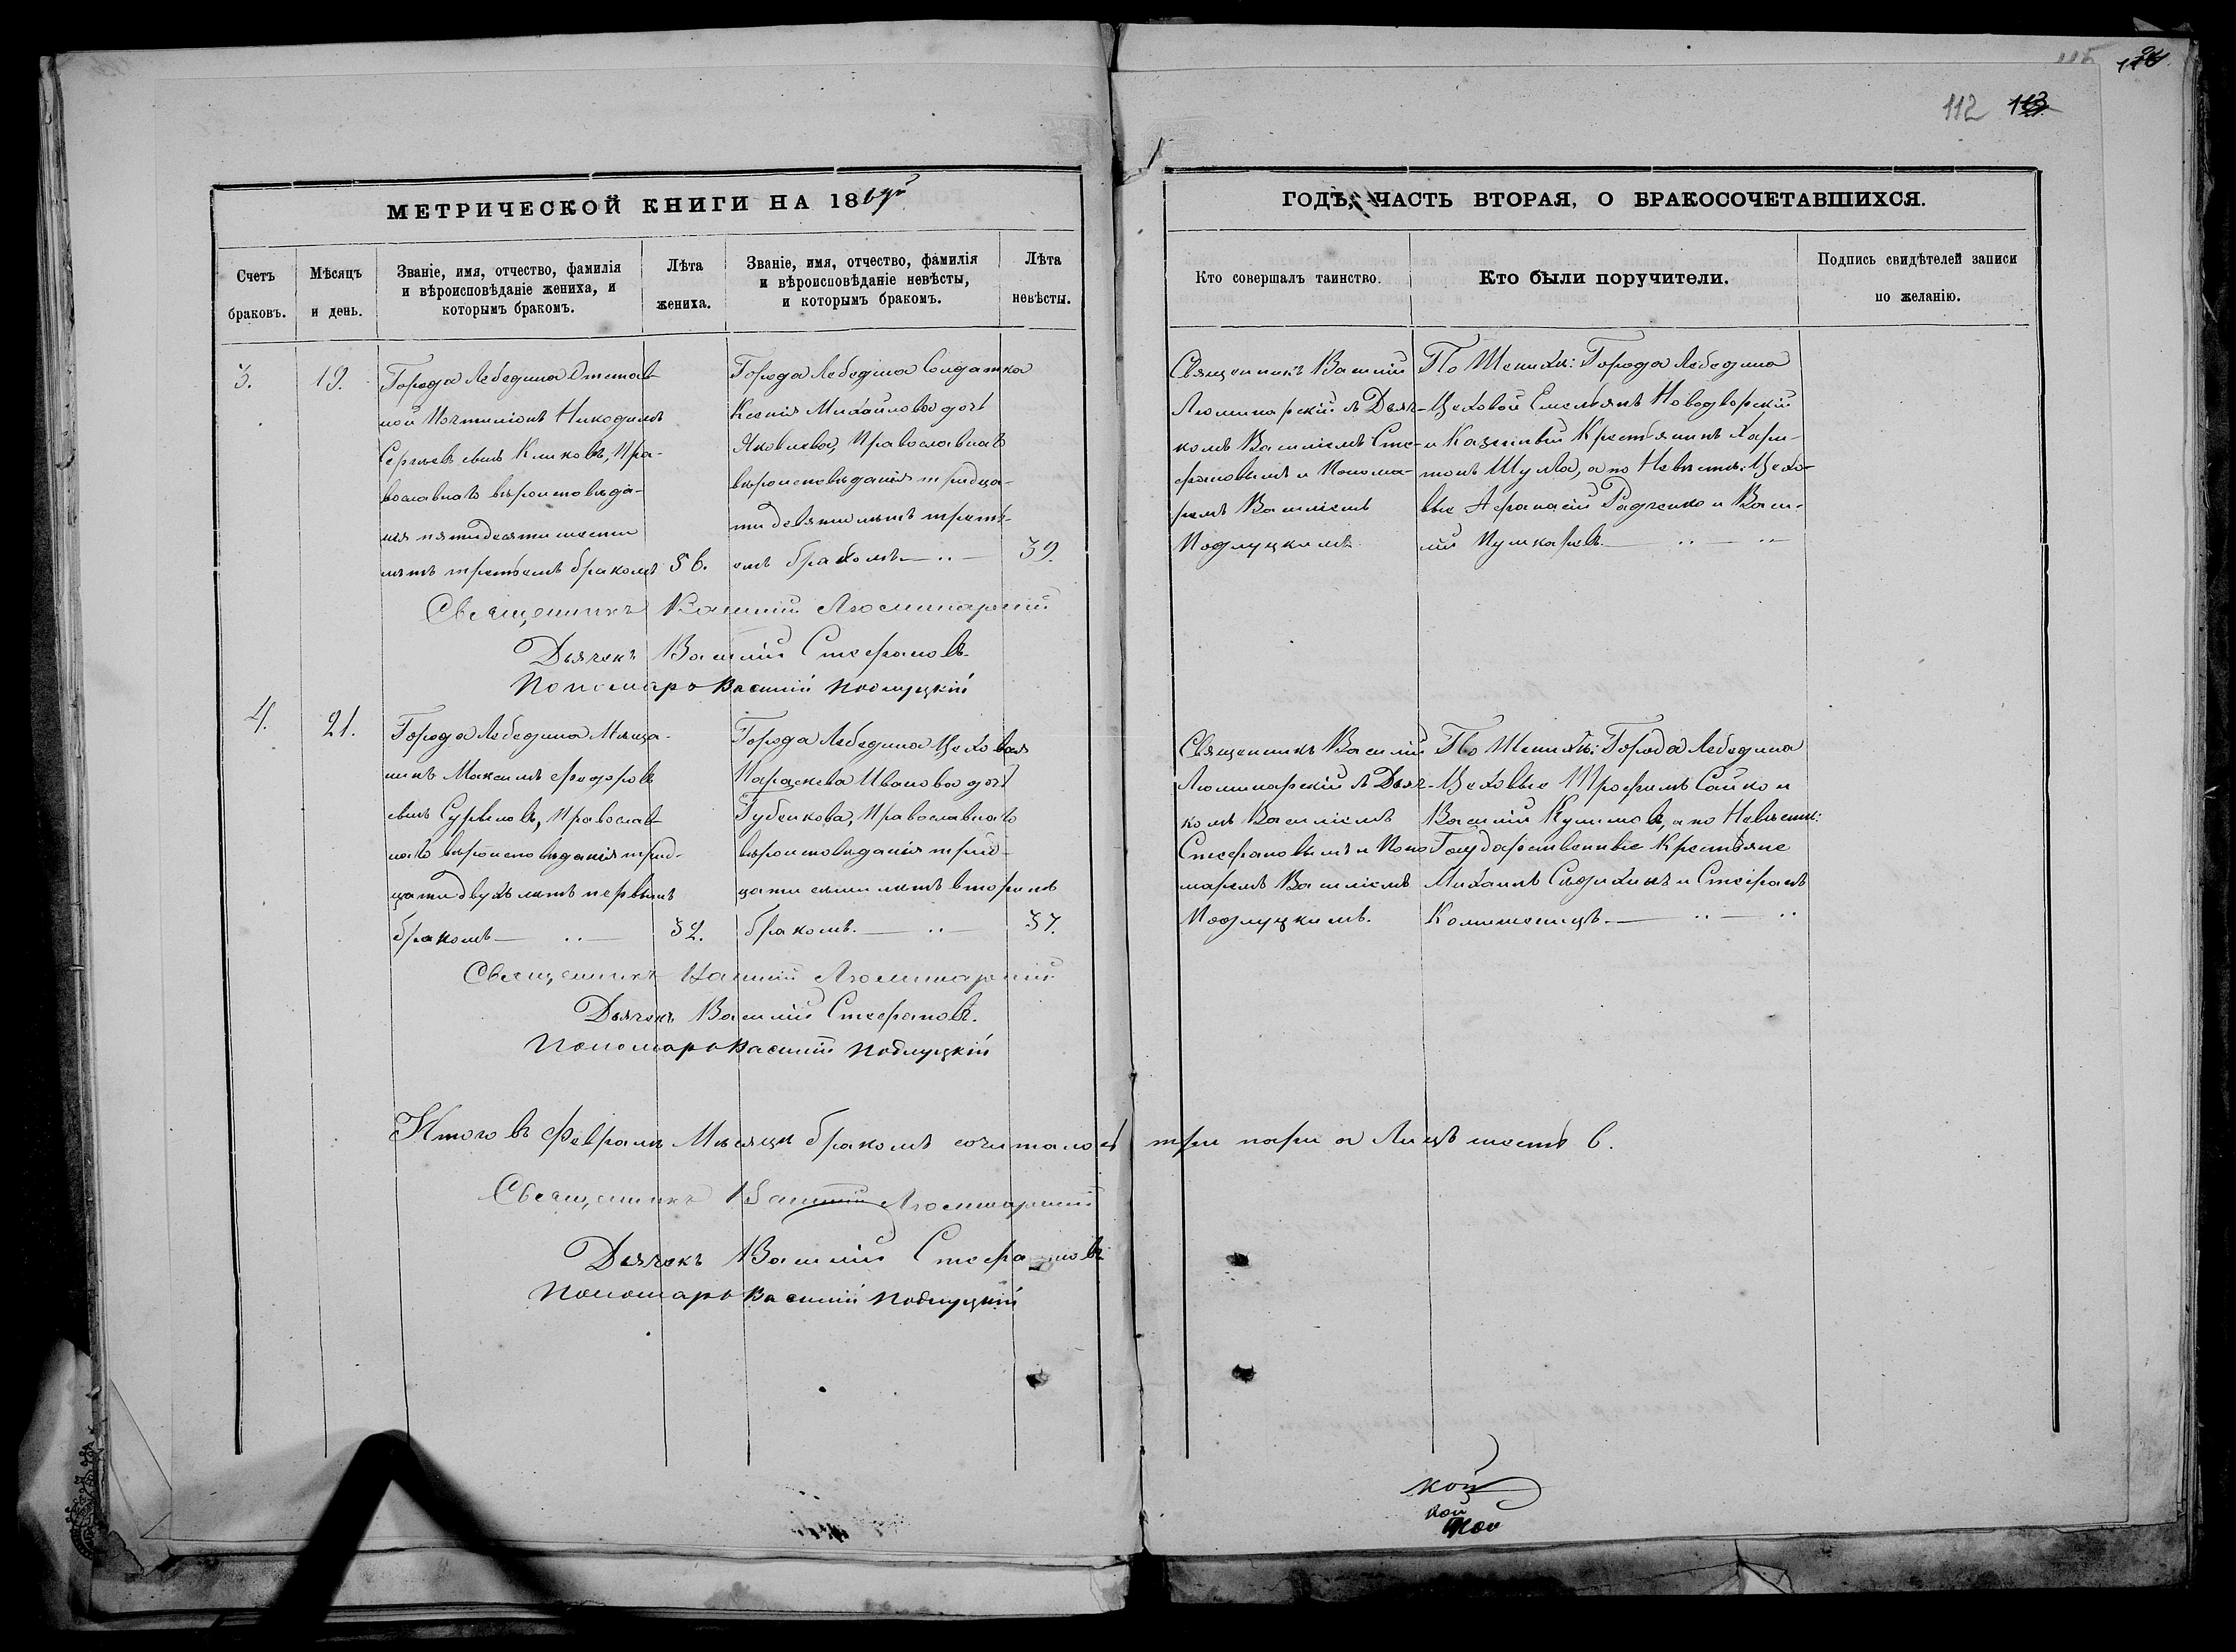 112 113
МЕТРИЧЕСКОЙ КНИГИ НА 18
ГОДЪ, ЧАСТЬ ВТОРАЯ, О БРАКОСОЧЕТАВШИХСЯ.
Счетъ браковъ.
Мѣсяцъ и день.
Званіе, имя, отчество, фамилія
и вѣроисповѣданіе жениха, и
которымъ бракомъ.
Лѣта жениха.
Званіе, имя, отчество, фамилія
и вѣроисповѣданіе невѣсты,
и которымъ бракомъ.
Лѣта невѣсты.
Кто совершалъ таинство.
Кто были поручители.
Подпись свидѣтелей записи
по желанію.
3.
19.
Города Лебедина Отстав-
ной Никодимъ
Сергѣевъ сынъ Климовъ, Пра-
вославнаго вѣроисповѣда-
нія пятидесяти шести
лѣтъ третьемъ бракомъ
56.
Города Лебедина Солдатка
Ксенія Михайлова дочь
Яковлева, Православнаго
вѣроисповѣданія тридца-
ти девяти лѣтъ треть-
емъ бракомъ
39.
Священникъ Василій
Люминарскій съ Дьяч-
комъ Василіемъ Сте-
фановымъ и Понома-
ремъ Василіемъ
Подлуцкимъ
По Женихѣ: Города Лебедина
Цеховой Емельянъ Новодворскій
и Казенный Крестьянинъ Хари-
тонъ Шулва, а по Невѣстѣ: Цехо-
вые Афанасій Радченко и Васи-
лій Пушкаревъ.
Священникъ Василій Люминарскій
Дьячекъ Василій Стефановъ
Пономарь Василій Подлуцкій
4.
21.
Города Лебедина Мѣща-
нинъ Максимъ Федоровъ
сынъ Православ-
наго вѣроисповѣданія трид-
цати двухъ лѣтъ первымъ
бракомъ
32.
Города Лебедина Цеховая
Параскева Иванова дочь
Губенкова, Православнаго
вѣроисповѣданія трид-
цати семи лѣтъ вторымъ
бракомъ.
37.
Священникъ Василій
Люминарскій съ Дьяч-
комъ Василіемъ
Стефановымъ и Поно
маремъ Василіемъ
Подлуцкимъ.
По Женихѣ: Города Лебедина
Цеховые Трофимъ Сайко и
Василій Кулишовъ, а по Невѣстѣ:
Государственные Крестьяне
Михаилъ и Стефанъ
Священникъ Василій Люминарскій
Дьячекъ Василій Стефановъ.
Пономарь Василій Подлуцкій
Итого въ Февралѣ Мѣсяцѣ бракомъ сочиталось три пары а Лицъ шесть 6.
Священникъ Василій Люминарскій
Дьячекъ Василій Стефановъ
Пономарь Василій Подлуцкій
кой
кой
кой